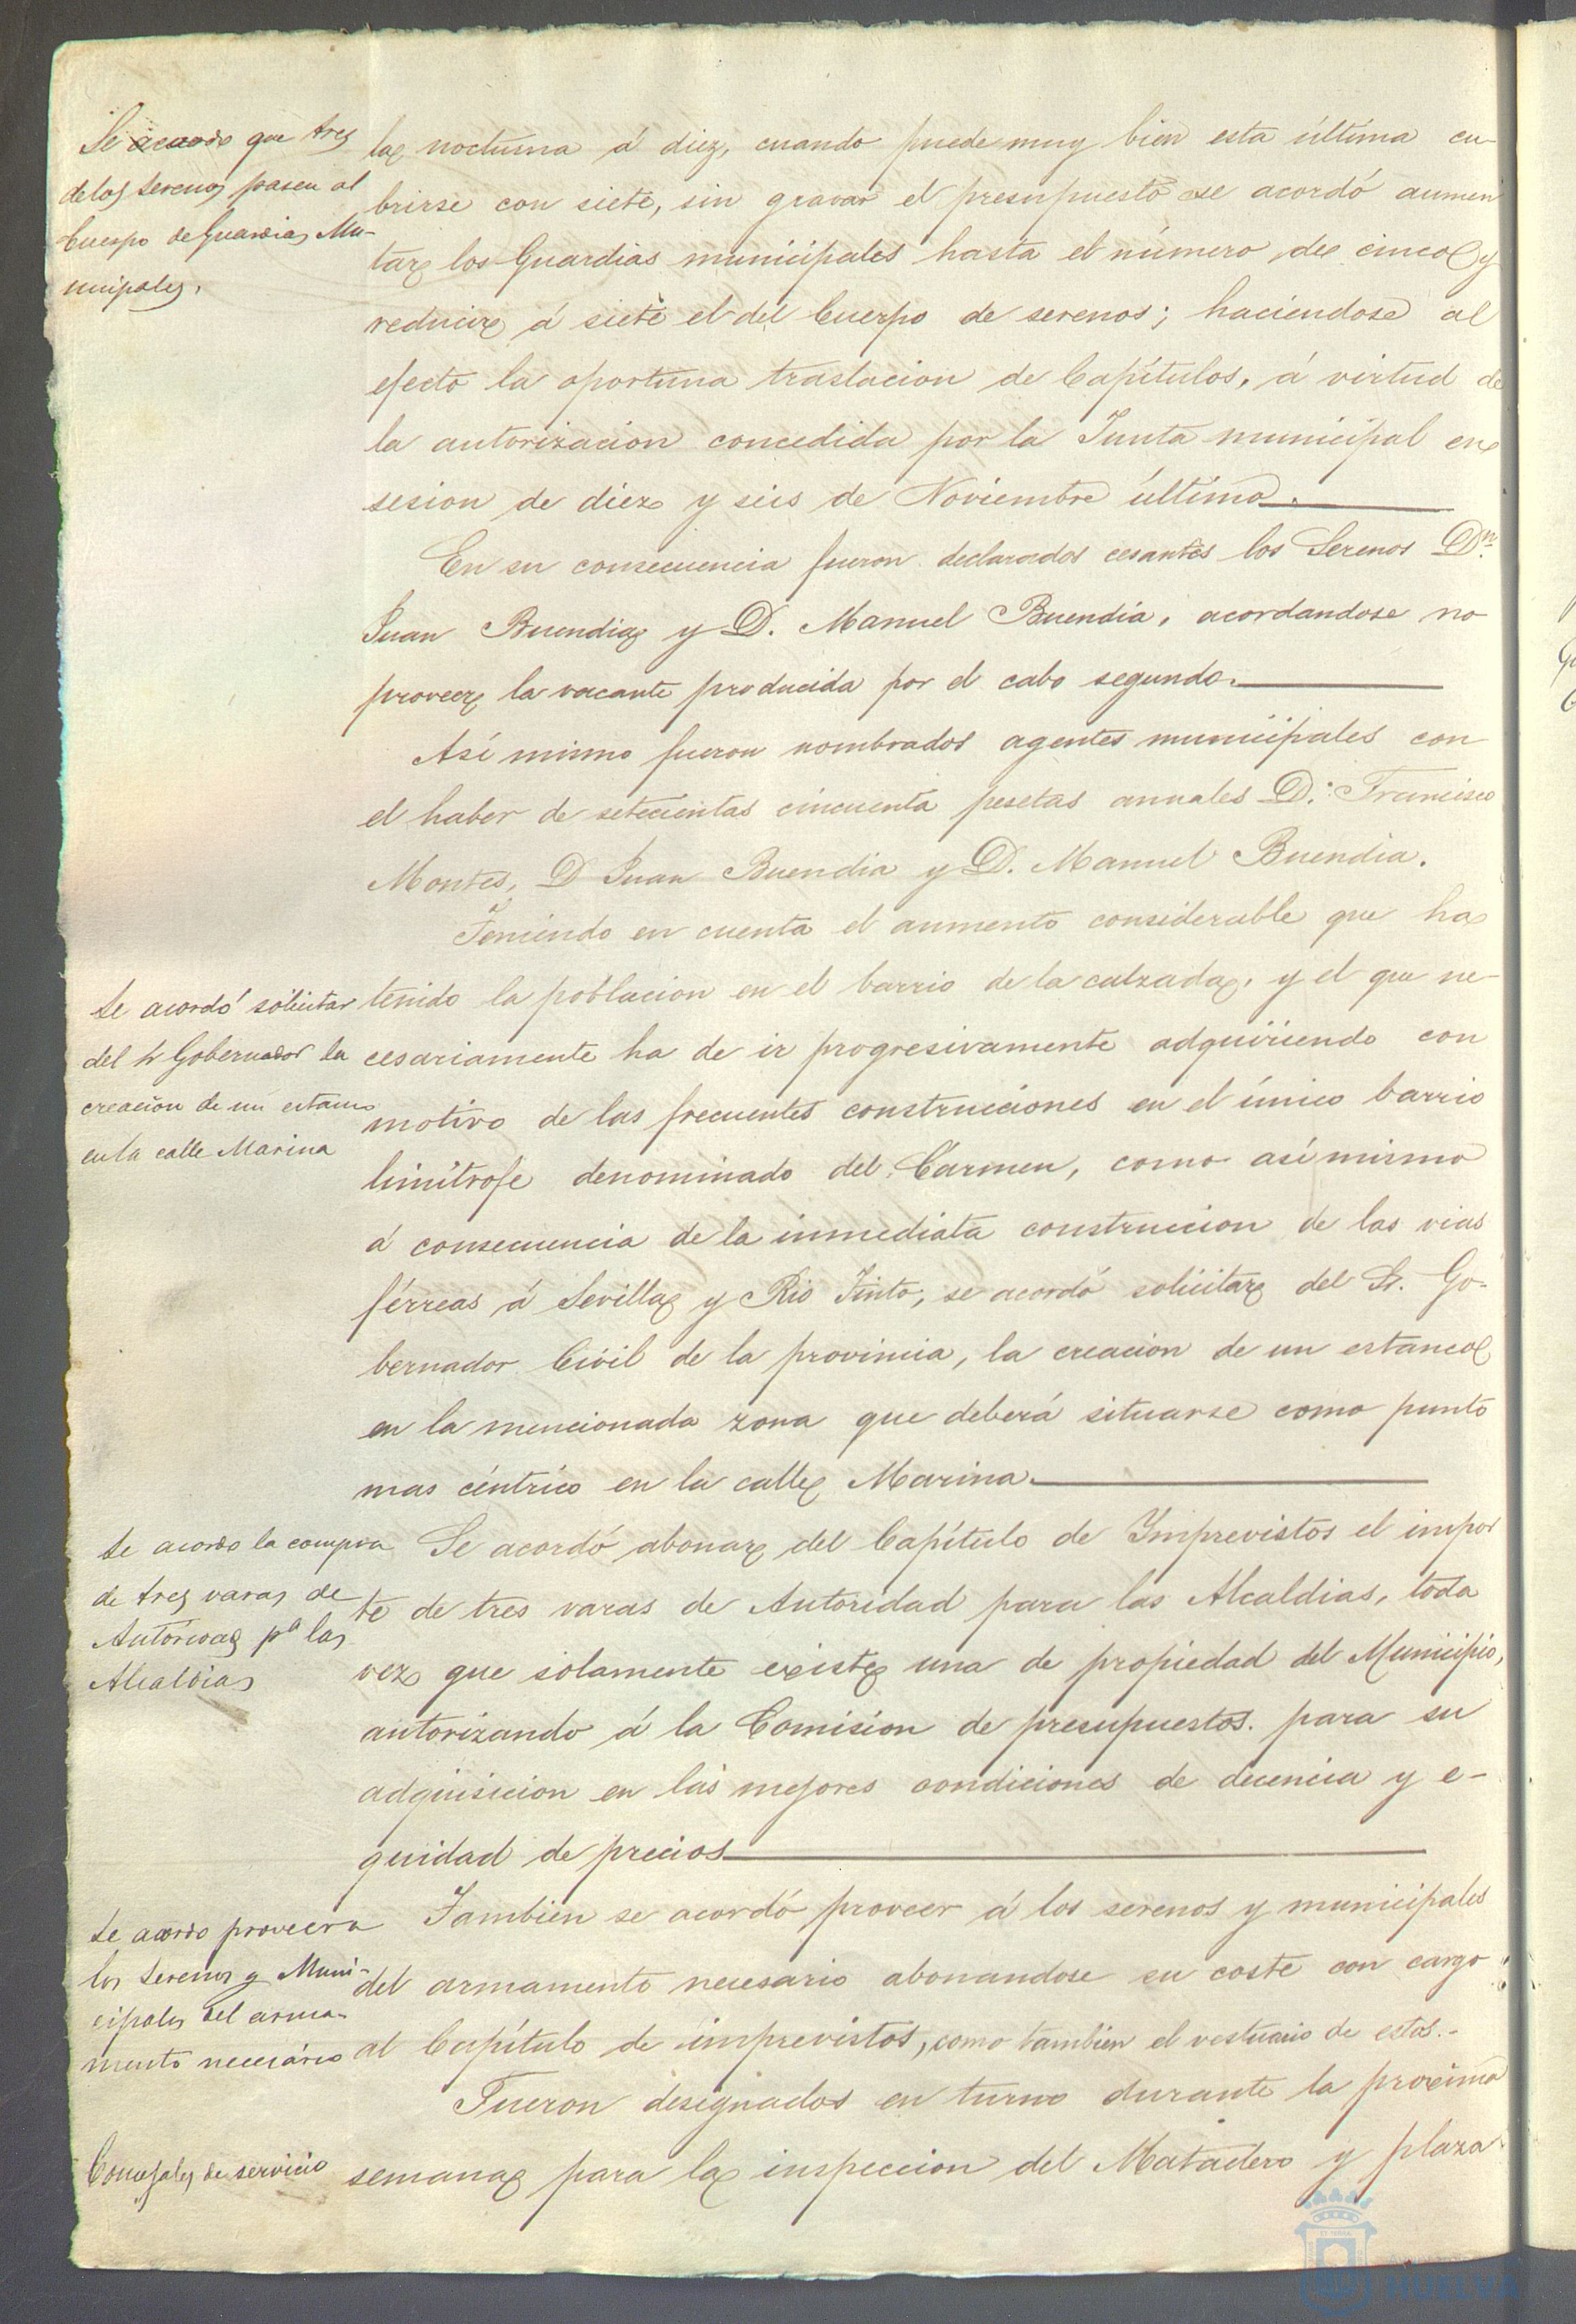 Se acordo que tres
de los serenos pasen al
Cuerpo de Guardias Mu-
nicipales.
la nocturna á diez, cuando puede muy bien esta última cu-
brirse con siete, sin gravar el presupuesto se acordó aumen
tar los Guardias municipales hasta el número de cinco y
reducir á siete el del Cuerpo de serenos; haciendose al
efecto la oportuna traslacion de Capítulos, á virtud de
la autorizacion concedida por la Junta municipal en
sesion de diez y seis de Noviembre último.
En su consecuencia fueron declarados cesantes los Serenos Dn.
Juan Buendia y D. Manuel Buendia, acordandose no
proveer la vacante producida por el cabo segundo.
Así mismo fueron nombrados agentes municipales con
el haber de setecientas cincuenta pesetas anuales D. Francisco
Montes, D Juan Buendia y D. Manuel Buendia.
Teniendo en cuenta el aumento considerable que ha
Se acordó solicitar
del Sr Gobernador la
creacion de un estanco
en la calle Marina
tenido la poblacion en el barrio de la calzada, y el que ne-
cesariamente ha de ir progresivamente adquiriendo con
motivo de las frecuentes construcciones en el único barrio
limítrofe denominado del Carmen, como asi mismo
á consecuencia de la inmediata construccion de las vias
férreas á Sevilla y Rio Tinto, se acordó solicitar del Sr. Go-
bernador Civil de la provincia, la creacion de un estanco
en la mencionada zona que deberá situarse como punto
mas céntrico en la calle Marina.
Se acordo la compra
de tres varas de
Autoridad pa las
Alcaldias
Se acordó abonar del Capítulo de Imprevistos el impor
te de tres varas de Autoridad para las Alcaldias, toda
vez que solamente existe una de propiedad del Municipio,
autorizando á la Comision de presupuestos. para su
adquisicion en las mejores condiciones de decencia y e-
quidad de precios
Se acordo proveer a
los Serenos y Muni-
cipales del arma-
mento necesario
Tambien se acordó proveer á los serenos y municipales
del armamento necesario abonandose su coste con cargo
al Capítulo de imprevistos, como tambien el vestuario de estos.-
Fueron designados en turno durante la proxima
Concejales de servicio
semana para la inspeccion del Matadero y plaza
HUELVA